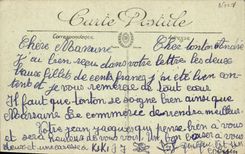 Carte Postale
Correspondance
Adresse
Chère Marraine Cher tonton André
J'ai bien reçu dans votre lettre les deux
beaux billets de cents francs j'ai été bien con
tent et je vous remercie de tout cœur
Il faut que tonton se soigne bien ainsi que
Marraine Le commerce de rendra meilleur
Votre petit Jean Jacques qui pense bien à vous
et sera heureux de vous voir Un bon baiser à vous
deux